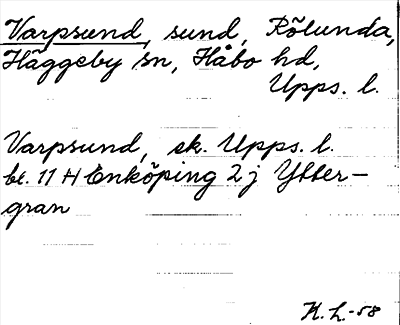 Varpsund, sund, Rölunda,
Häggeby sn, Håbo hd,
Upps. l.
Varpsund, ek. Upps. l.
bl. 11 H Enköping 2 j Ytter-
gran
H. L.-58